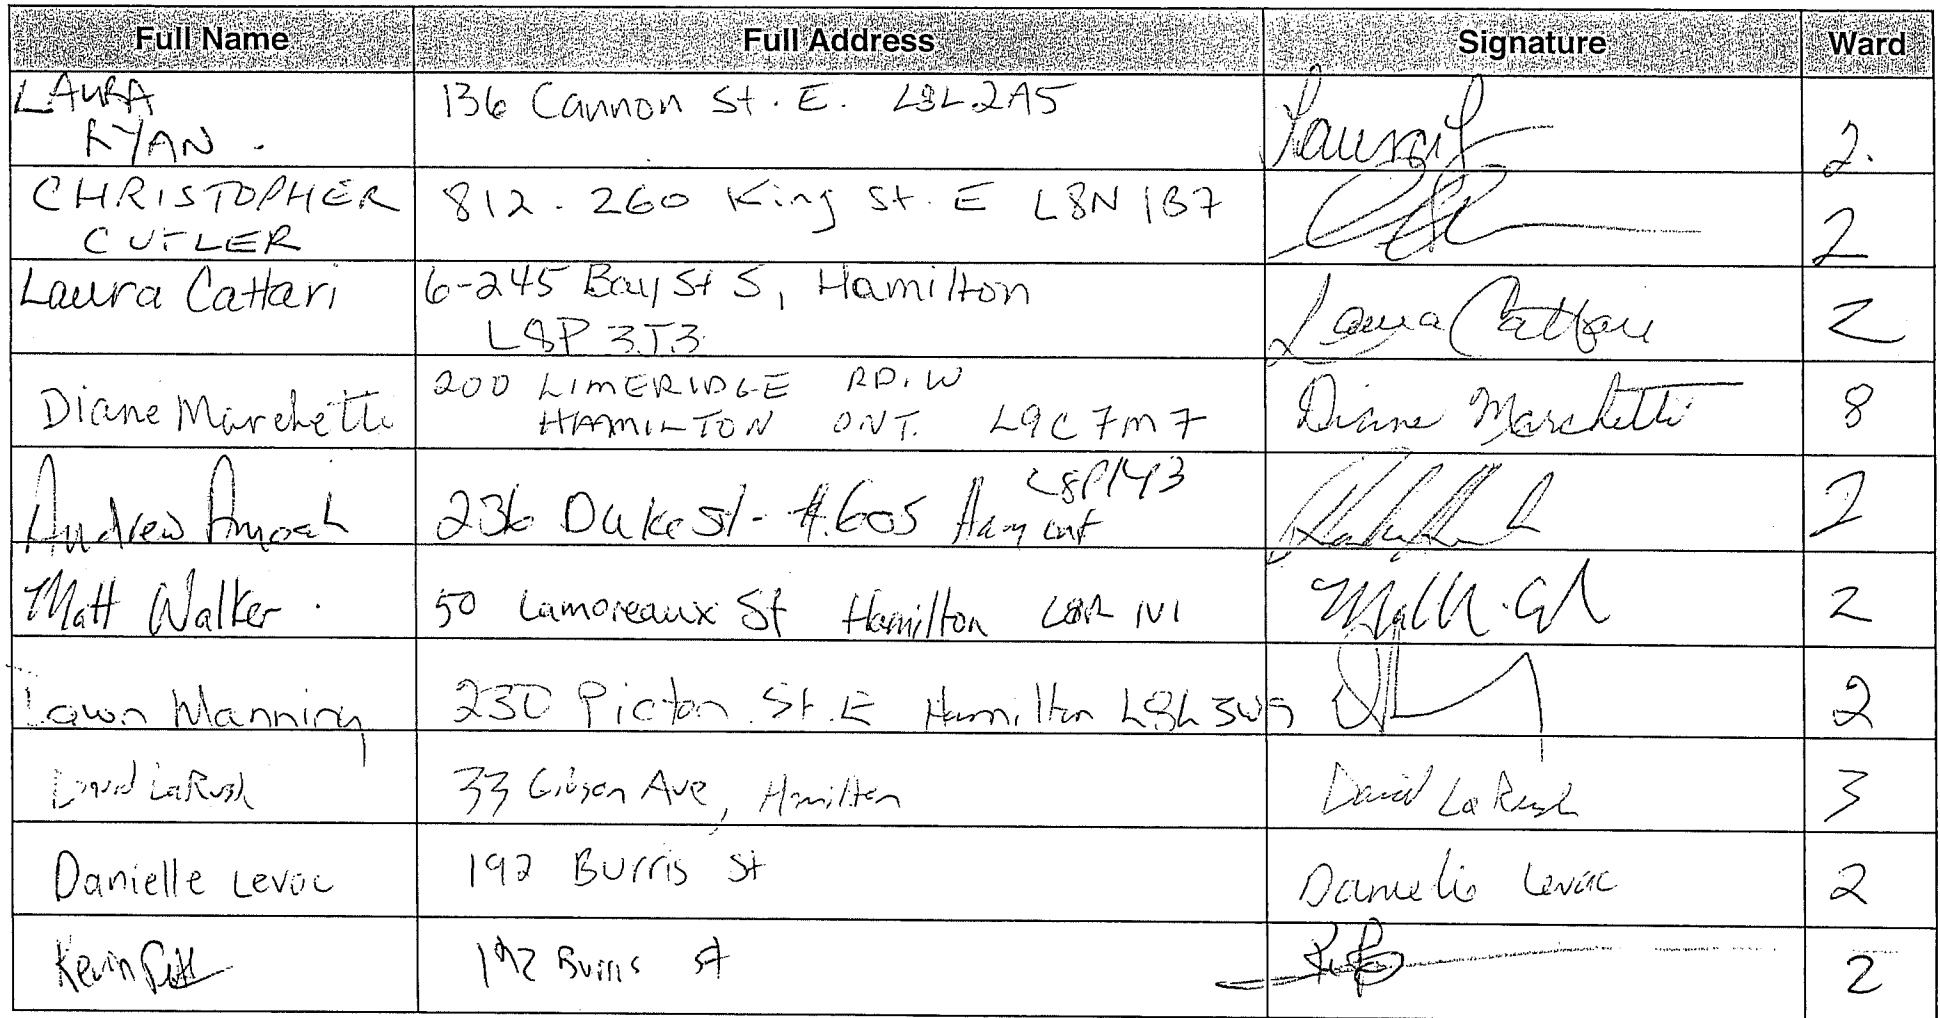 Full Name Full Address Signature Ward
LAURA
RYAN . 136 Cannon St. E. L8L 2A5 2.
CHRISTOPHER
CUTLER 812 - 260 King St. E L8N 1B7 2
Laura Cattari 6-245 Bay St S, Hamilton
L8P 3T3 Laura Cattari 2
Diane Marchetti 200 LIMERIDGE RD. W
HAMILTON ONT. L9C 7M7 Diane Marchetti 8
L8P
Andrew Amoah 236 Duke St - #605 Ham ont 2
Matt Walker . 50 Lamoreaux St Hamilton L8R 1V1 2
Manning 230 Picton St. E Hamilton L8L 3W9 2
David LaRush 33 Gibson Ave, Hamilton David LaRush 3
Danielle Levac 192 Burris St Danielle Levac 2
Kevin 192 Burris St 2